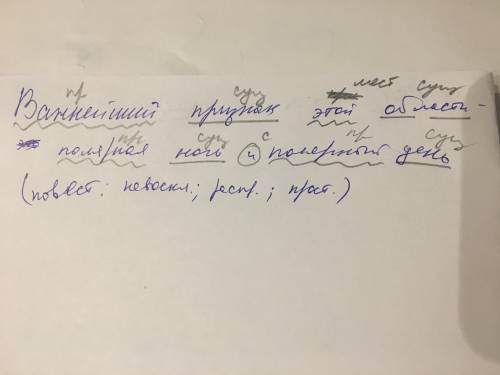 пр сущ мест сущ
Важнейший признак этой области -
пр сущ с пр сущ
полярная ночь и полярный день
(повест.; невоскл.; распр.; прост.)